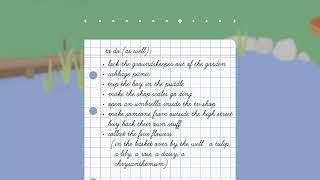 to do (as well):
- lock the groundskeeper out of the garden
- cabbage picnic
- trip the boy in the puddle
- make the shop scales go ding
- open an umbrella inside the tv shop
- make someone from outside the high street
buy back their own stuff
- collect the five flowers
(in the basket over by the well: a tulip,
a lily, a rose, a daisy, a
chrysanthemum)